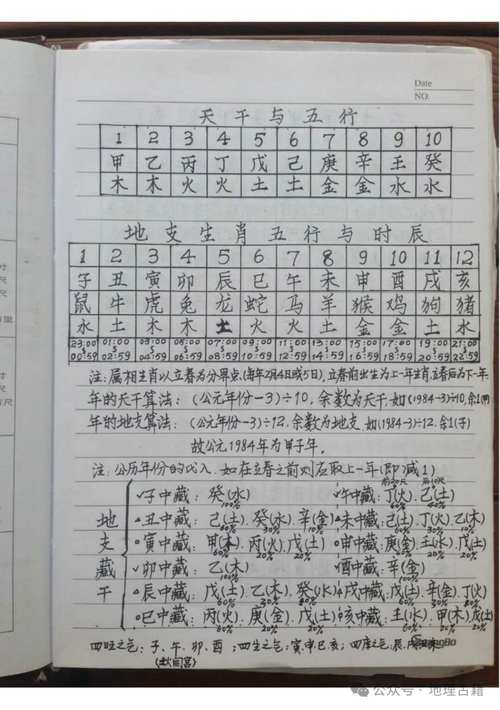 Date
NO.
天干与五行
1 2 3 4 5 6 7 8 9 10
甲 乙 丙 丁 戊 己 庚 辛 壬 癸
木 木 火 火 土 土 金 金 水 水
地支生肖五行与时辰
1 2 3 4 5 6 7 8 9 10 11 12
子 丑 寅 卯 辰 巳 午 未 申 酉 戌 亥
鼠 牛 虎 兔 龙 蛇 马 羊 猴 鸡 狗 猪
水 土 木 木 土 火 火 土 金 金 土 水
23:00 01:00 03:00 05:00 07:00 09:00 11:00 13:00 15:00 17:00 19:00 21:00
00:59 02:59 04:59 06:59 08:59 10:59 12:59 14:59 16:59 18:59 20:59 22:59
注:属相生肖以立春为分界点,(每年2月4日或5日),立春前出生为上一年生肖,立春后为下一年.
年的天干算法:(公元年份-3)÷10,余数为天干.如(1984-3)÷10,余1(甲)
年的地支算法:(公元年份-3)÷12,余数为地支.如(1984-3)÷12,余1(子)
故公元1984年为甲子年。
注:公历年份的代入,如在立春之前则应取上一年(即减1)
地支藏干
子中藏:癸(水) 100%
丑中藏:己(土).癸(水).辛(金)
寅中藏:甲(木).丙(火).戊(土) 60% 20% 20%
卯中藏:乙(木) 100%
辰中藏:戊(土).乙(木).癸(水)
巳中藏:丙(火).庚(金).戊(土) 60% 20% 20%
午中藏:丁(火).己(土)
未中藏:己(土).丁(火).乙(木)
申中藏:庚(金).壬(水).戊(土)
酉中藏:辛(金) 100%
戌中藏:戊(土).辛(金).丁(火)
亥中藏:壬(水).甲(木).戊(土)
四旺之气:子、午、卯、酉;四生之气:寅.申.巳.亥;四库之气:辰.
公众号·地理古籍